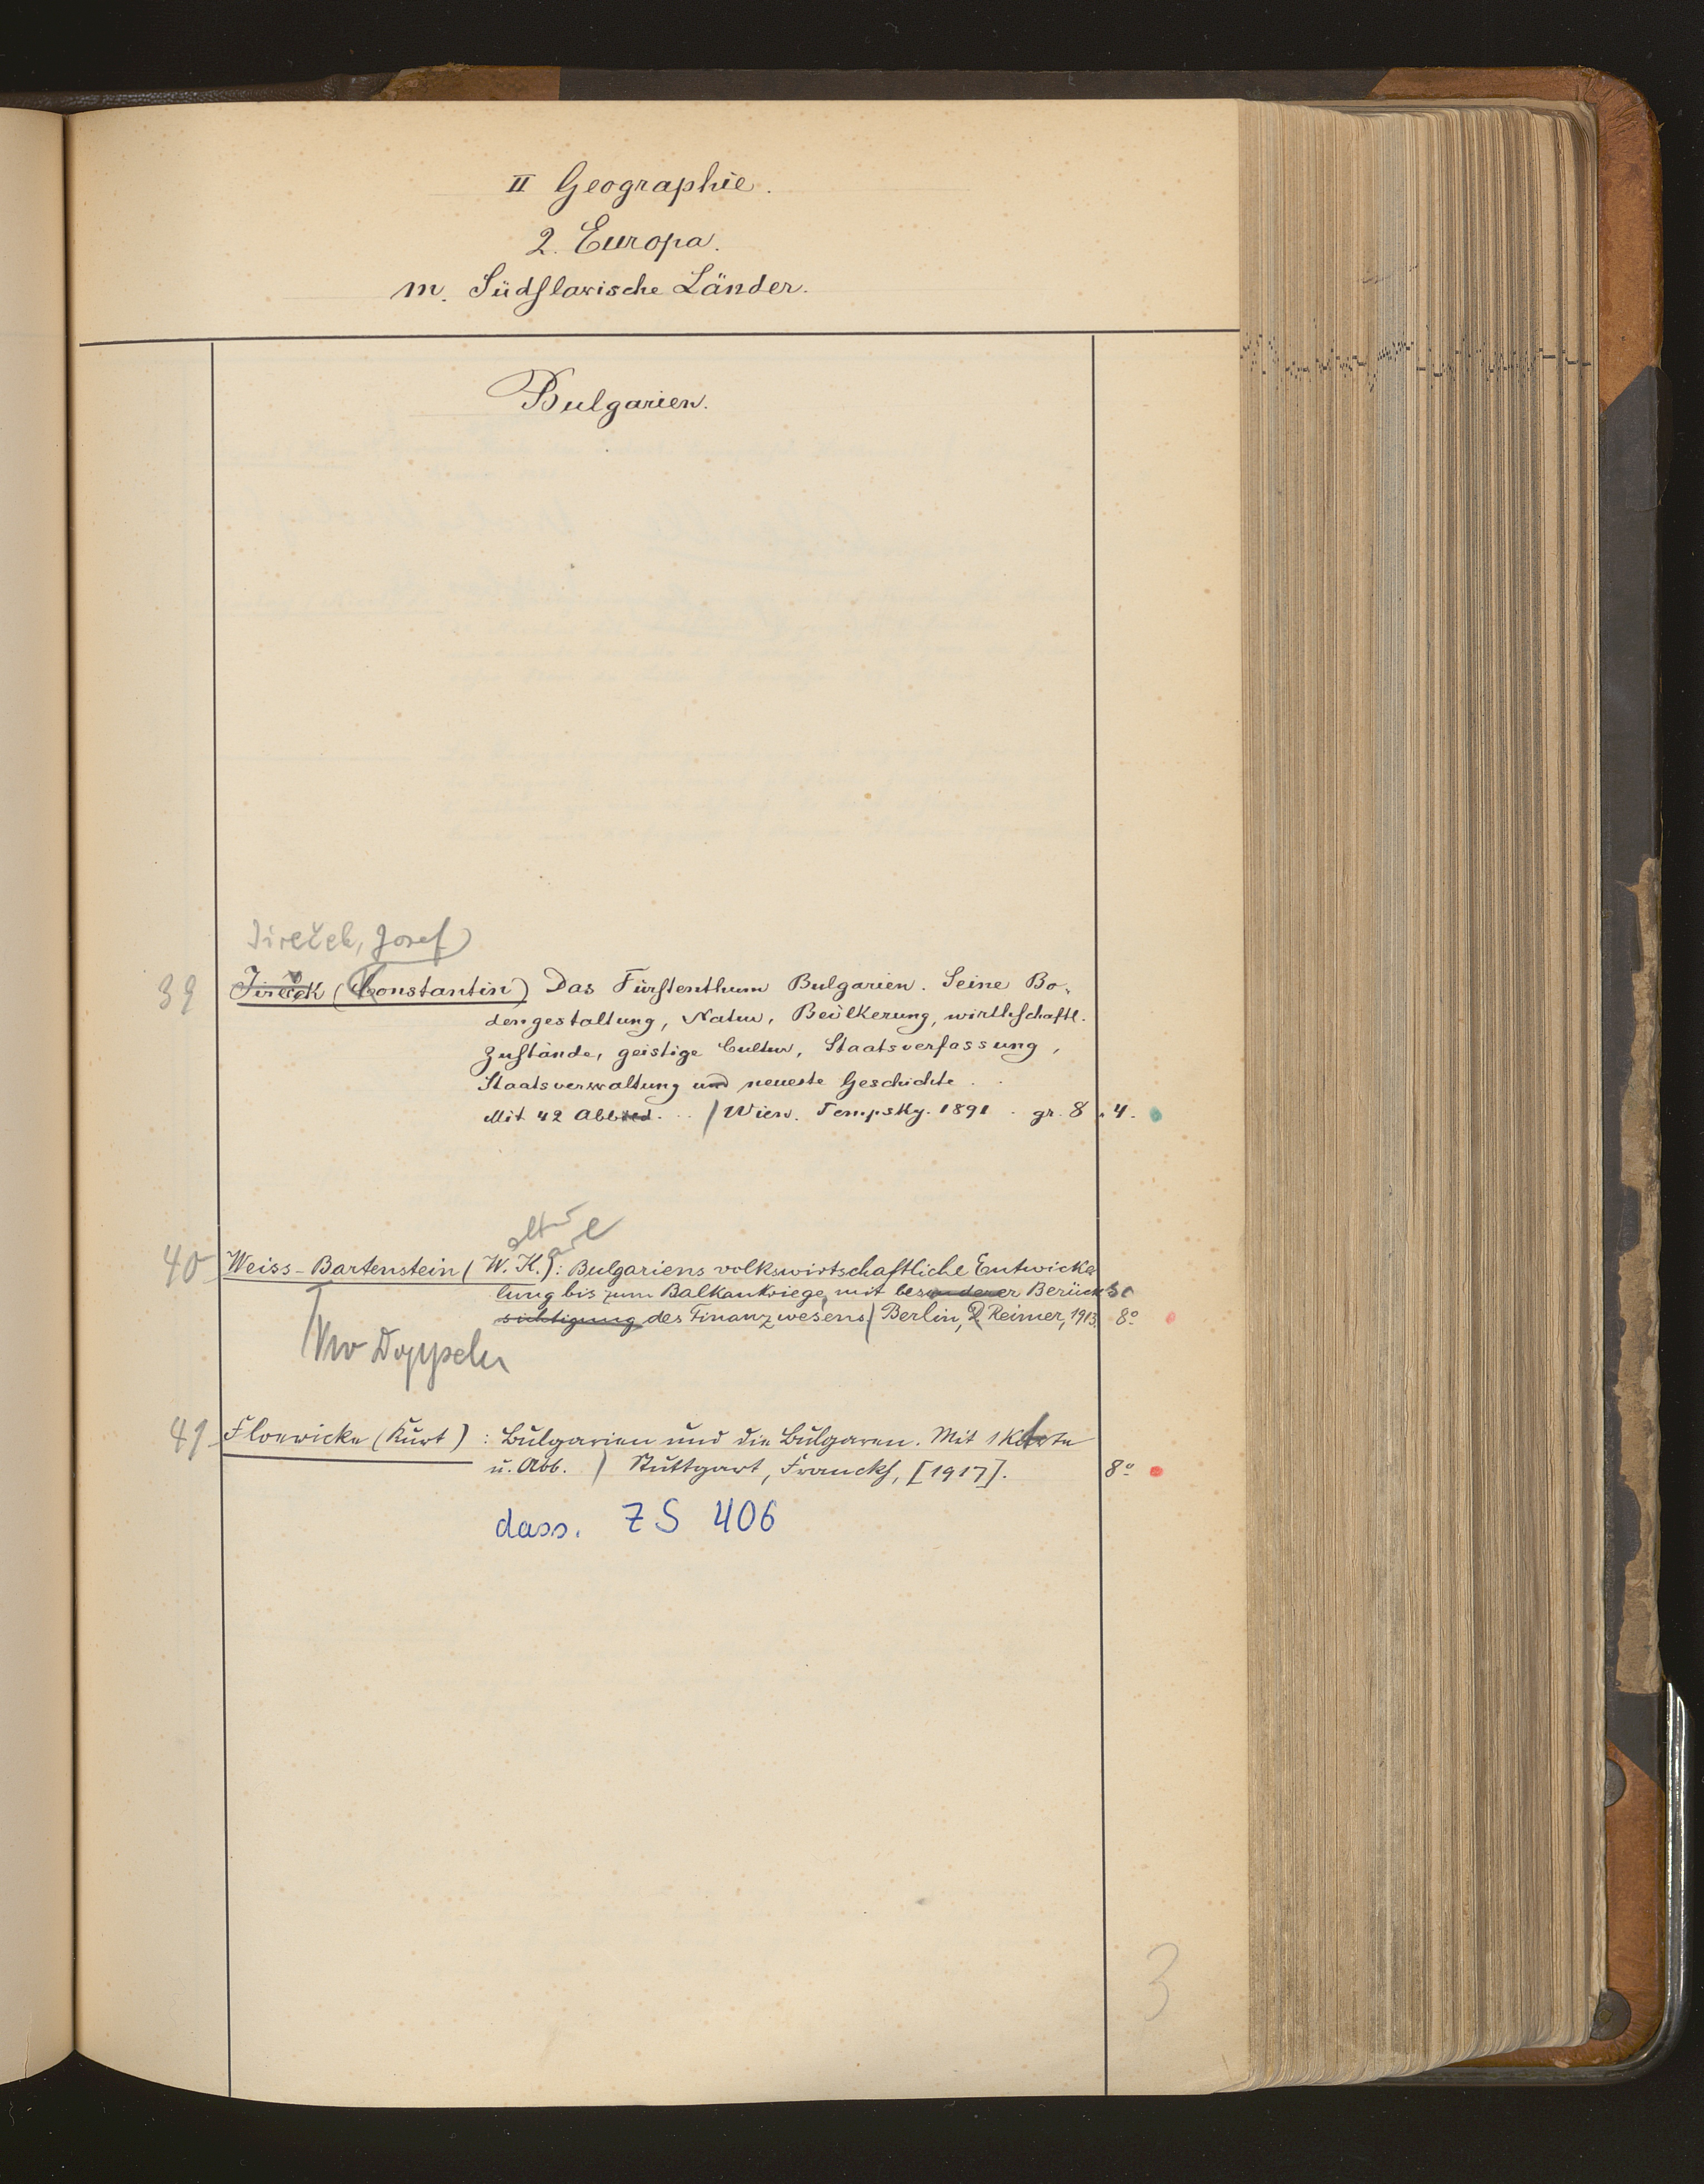 II Geographie.
2. Europa.
m. Südslavische Länder.
Bulgarien.
Jireček, Josef
39 Jireček (Constantin) Das Fürstenthum Bulgarien. Seine Bo-
dengestaltung, Natur, Bevölkerung, wirthschaftl.
Zustände, geistige Cultur, Staatsverfassung,
Staatsverwaltung und neueste Geschichte . .
Mit 42 Abbild. . . / Wien. Tempsky. 1891 . gr. 8 . 4.
alter arl
40 Weiss-Bartenstein (W. K.): Bulgariens volkswirtschaftliche Entwicke
lung bis zum Balkankriege, mit besonderer Berück
sichtigung des Finanzwesens / Berlin, D Reimer, 1913. 8°
Doppeln
41 Floericke (Kurt) : Bulgarien und die Bulgaren. Mit 1 Karte
u. Abb. / Stuttgart, Franckh, [1917]. 8°
dass. ZS 406
3